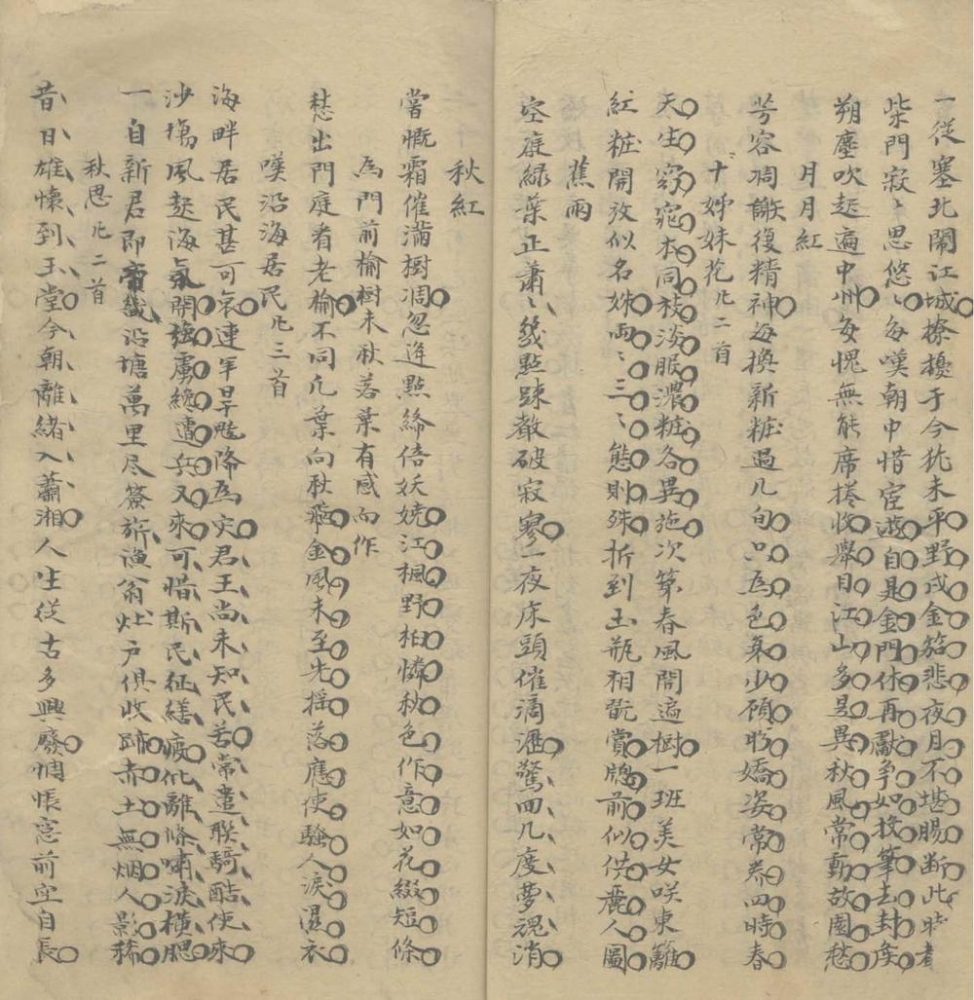 一從塞北鬧江城撩擾于今犹未平野戍金笳悲夜月不堪腸断此時
柴門寂〻思悠〻每嘆朝中惜宦遊自是金門休再獻争如投筆去封侯
朔塵吹起遍中州每愧無能席捲收舉目江山多是異秋風常動故園愁
月月紅
芳容凋謝復精神每換新粧過几旬只為色衰少顧盼嬌姿常养四時春
十姊妹花凢二首
天生窈窕本同枝淡服濃粧各異施次第春風開遍樹一班美女咲東籬
紅粧開放似名姝兩〻三〻態則殊折到玉瓶相翫賞牕前似供麗人圖
蕉雨
空庭緑葉正蕭〻幾點踈聲破寂寥一夜床頭催滴瀝驚回几度夢魂消
秋紅
當慨霜催滿樹凋忽逢點綘倍妖嬈江楓野柏憐秋色作意如花綴短條
為門前榆樹未秋落葉有感而作
愁出門庭看老榆不同凢葉向秋金風未至先揺落應使騷人淚濕衣
嘆沿海居民凢三首
海畔居民甚可哀連年旱魃降為灾君王尚未知民苦常遣联騎酷使來
沙塲風起海氛開強虜纔遭兵又來可惜斯民征繕疲仳離條嘯淚橫腮
一自新君即帝畿沿塘萬里尽簽旂漁翁灶户俱收跡赤土無烟人影稀
秋思凢二首
昔日雄懷到玉堂今朝離緒入蕭湘人生從古多興廢惆悵窓前空自長